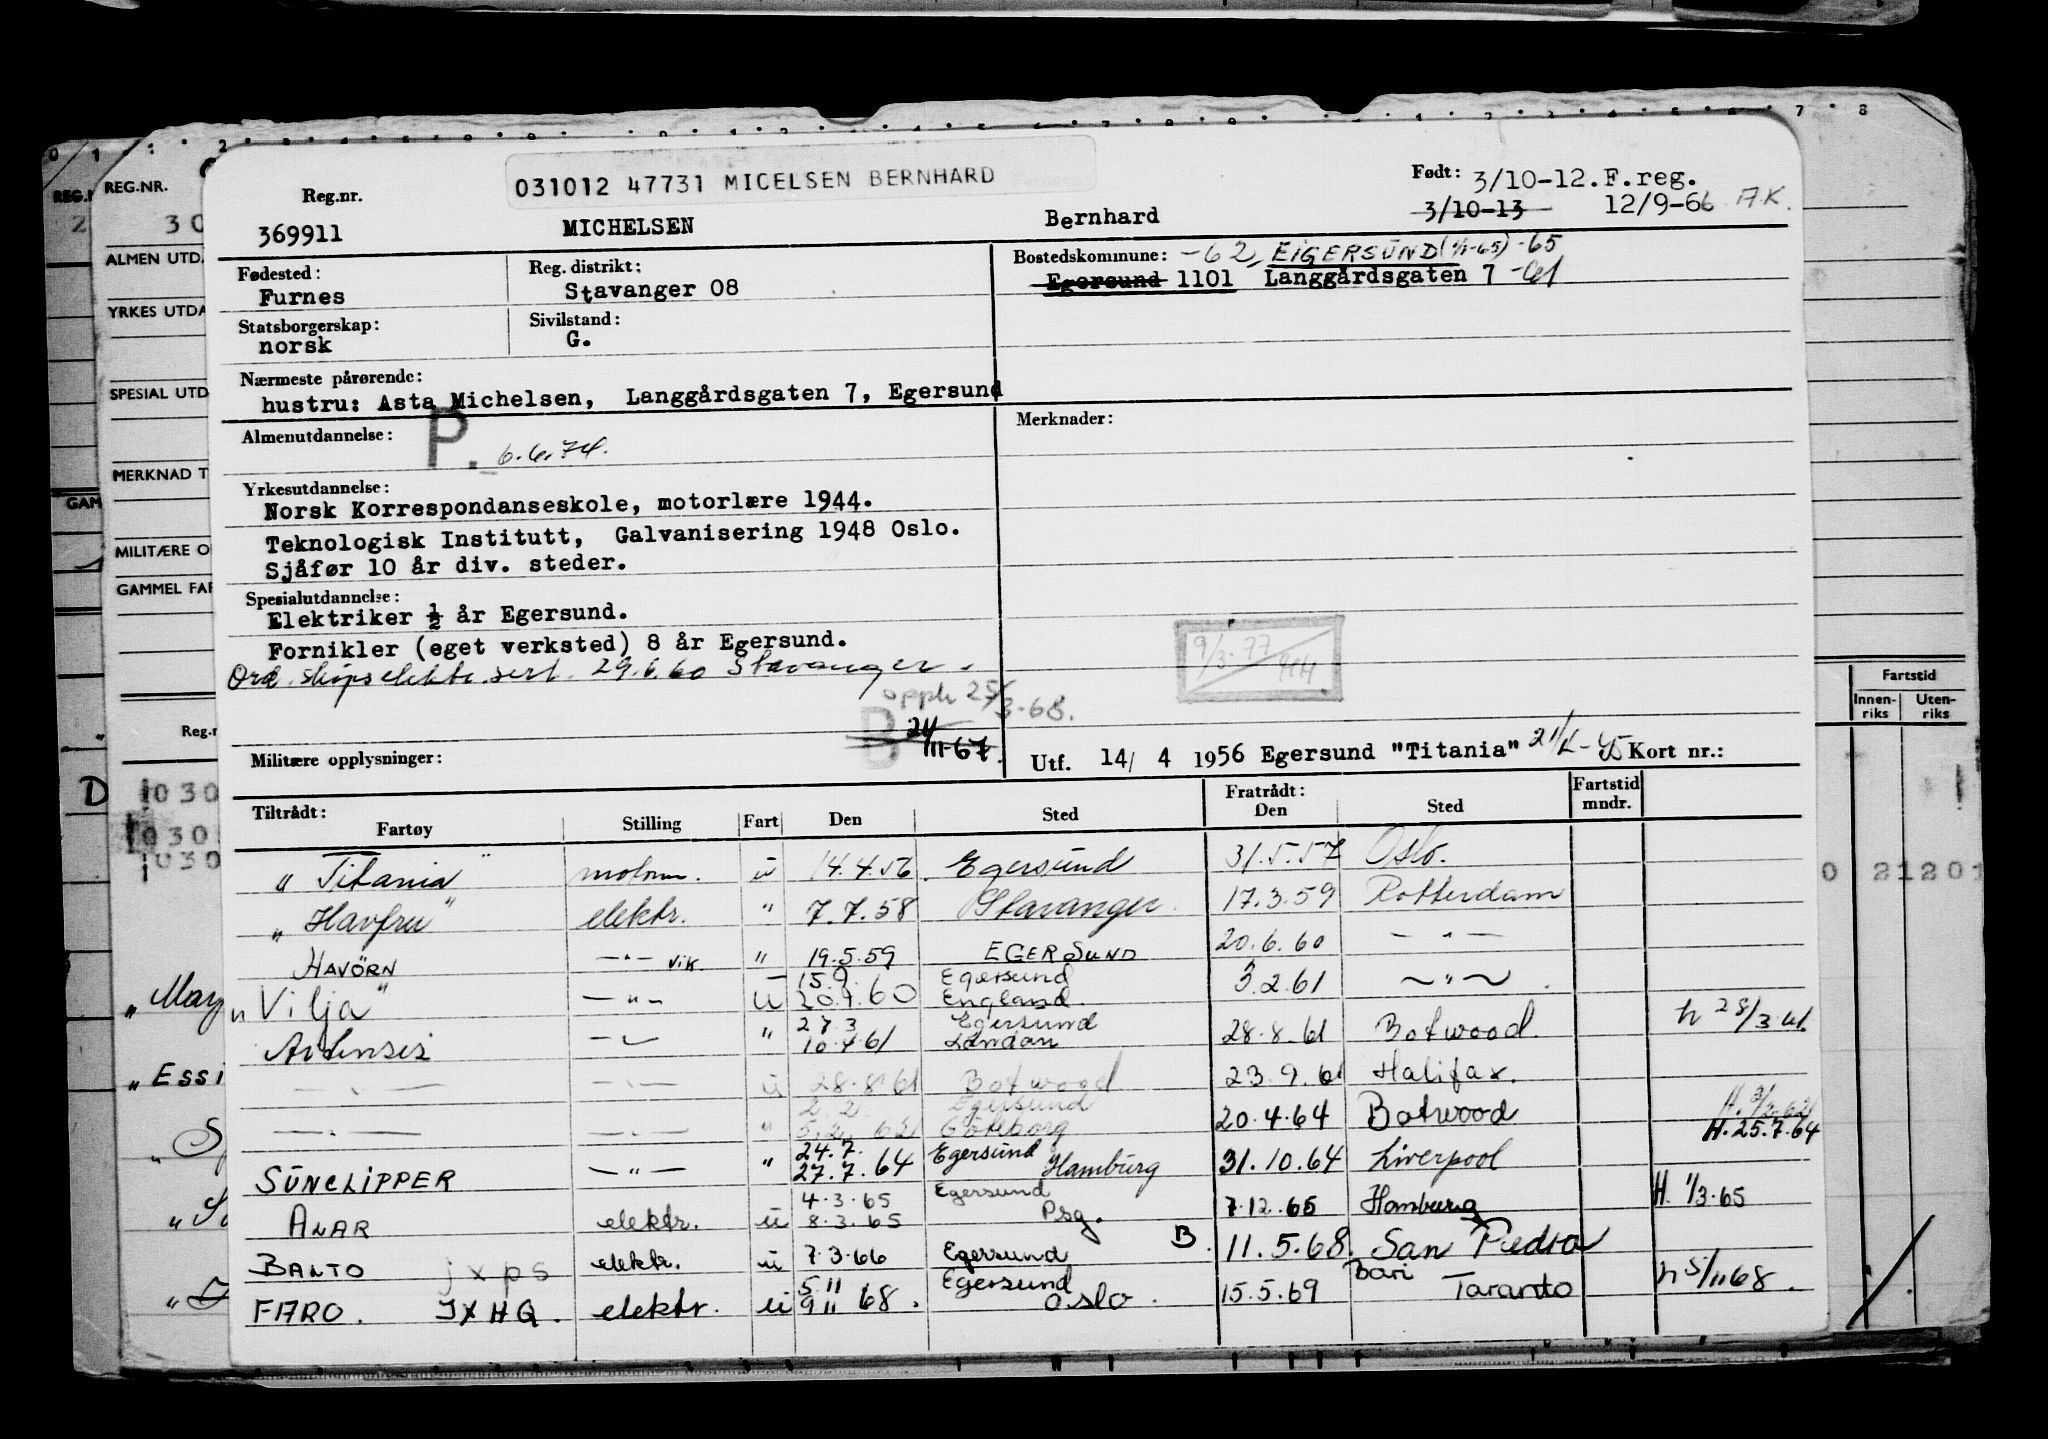 031012 47731 MICELSEN BERNHARD
Reg.nr.
369911 MICHELSEN Bernhard
Født: 3/10-12.F.reg.
3/10-13 12/9-66 A.K.
Fødested: Furnes
Reg. distrikt: Stavanger 08
Bostedskommune: -62, EIGERSUND (1/1-65) -65
Egersund 1101 Langgårdsgaten 7 -61
Statsborgerskap: norsk
Sivilstand: G.
Nærmeste pårørende:
hustru: Asta Michelsen, Langgårdsgaten 7, Egersund
Almenutdannelse: P. 6.6.74.
Merknader:
Yrkesutdannelse:
Norsk Korrespondanseskole, motorlære 1944.
Teknologisk Institutt, Galvanisering 1948 Oslo.
Sjåfør 10 år div. steder.
Spesialutdannelse:
Elektriker ½ år Egersund.
Fornikler (eget verksted) 8 år Egersund.
Ord. skipselektr. sert. 29.6.60 Stavanger.
9/3-77
opph 25/3-68.
B 24/11-67.
Militære opplysninger:
Utf. 14/ 4 1956 Egersund "Titania" Kort nr.:
Tiltrådt: Fartøy Stilling Fart Den Sted Fratrådt: Den Sted Fartstid mndr.
"Titania" motorm. u 14.4.56 Egersund 31.5.57 Oslo.
"Havfru" elektr. " 7.7.58 Stavanger 17.3.59 Rotterdam
HAVÖRN — " — vik. " 19.5.59 EGERSUND 20.6.60 — " —
"Vilja" — " — u 15.9. 20.9.60 Egersund England 3.2.61 — " —
Artensis — " — " 27.3 10.4.61 Egersund London 28.8.61 Botwood. h 28/3.61.
— " — — " — u 28.8.61 Botwood 23.9.61 Halifax.
— " — — " — " 2.2. 5.2.62 Egersund Göteborg 20.4.64 Botwood H. 3/2.62
H. 25.7.64
SUNCLIPPER — " — " 24.7. 27.7.64 Egersund Hamburg 31.10.64 Liverpool
ALAR elektr. u 4.3.65 8.3.65 Egersund Psg. 7.12.65 Hamburg H. 1/3.65
BALTO jxps elektr. u 7.3.66 Egersund B. 11.5.68. San Pedro
FARO. JXHQ. elektr. u 5.11 9.11 68. Egersund Oslo. 15.5.69 Bari Taranto h 5/11 68.
REG.NR.
30
ALMEN UTD.
YRKES UTDA
SPESIAL UTD
MERKNAD T
GAM
MILITÆRE O
GAMMEL FAR
Reg.n
D
030
030
030
Fartstid
Innen-riks Uten-riks
0 21201
"May
"Essi